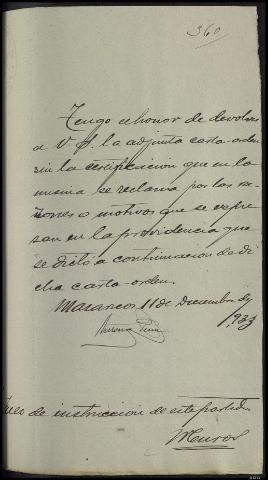 360
Tengo el honor de devolver
a V.S. la adjunta carta-orden
sin la certificación que en la
misma se reclama por las ra-
zones o motivos que se expre-
san en la providencia que
se dictó a continuación de di-
cha carta-orden.
Mazaricos 11 de Diciembre de
1933
Juez de instrucción de este partido
Muros